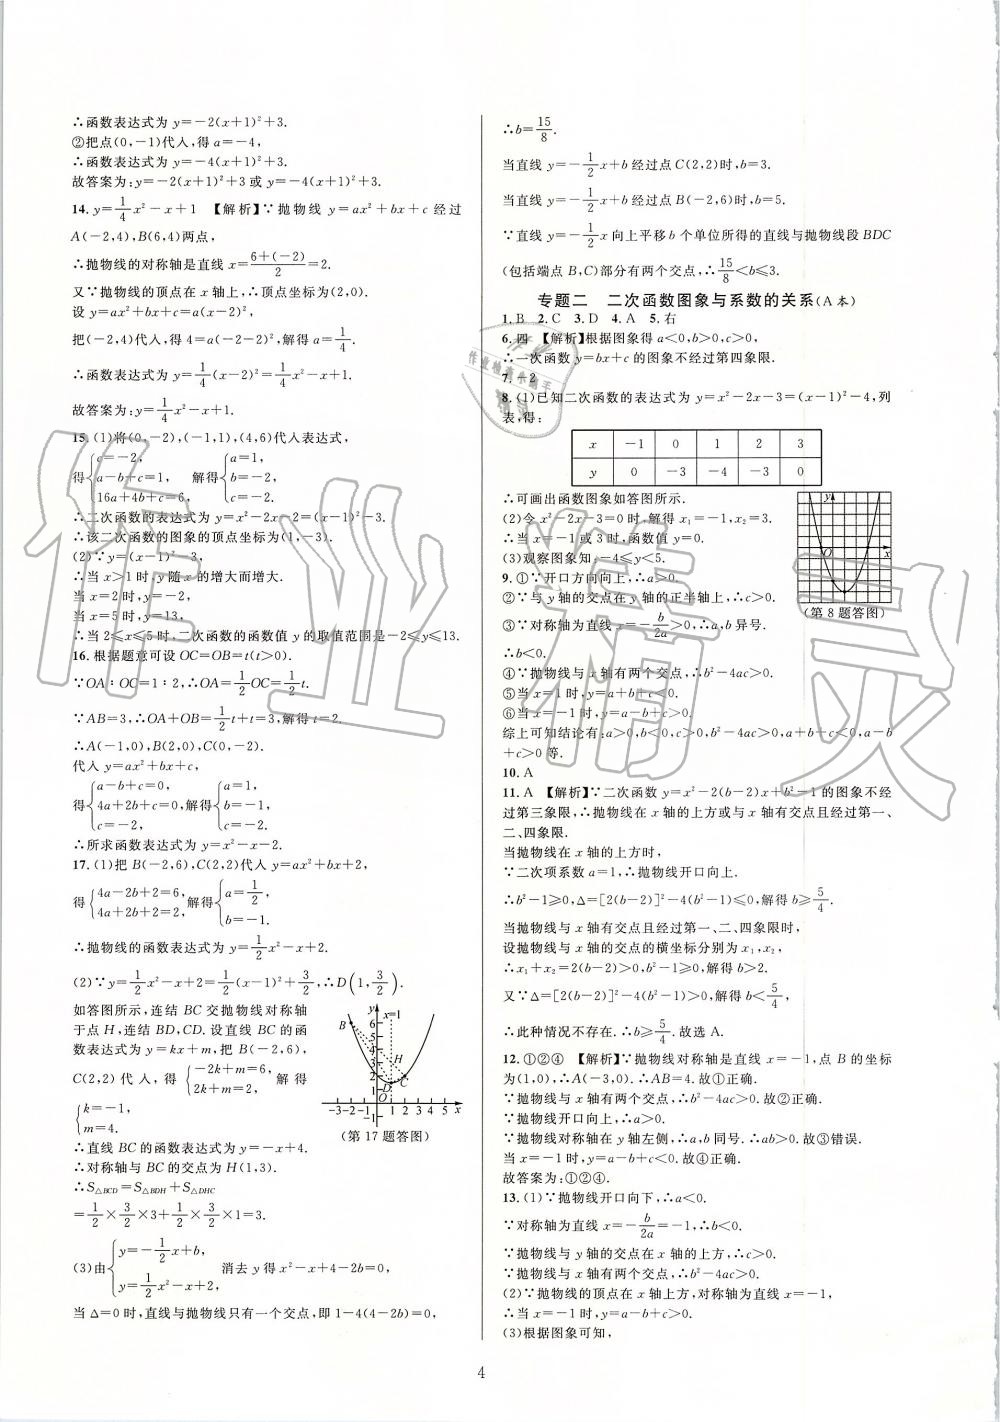 ∴函数表达式为 y=-2(x+1)²+3.
②把点(0,-1)代入,得 a=-4,
∴函数表达式为 y=-4(x+1)²+3.
故答案为:y=-2(x+1)²+3或 y=-4(x+1)²+3.
14. y=1/4x²-x+1 【解析】∵抛物线 y=ax²+bx+c 经过
A(-2,4),B(6,4)两点,
∴抛物线的对称轴是直线 x=(6+(-2))/2=2.
又∵抛物线的顶点在 x 轴上,∴顶点坐标为(2,0).
设 y=ax²+bx+c=a(x-2)²,
把(-2,4)代入,得 4=a(-2-2)²,解得 a=1/4,
∴函数表达式为 y=1/4(x-2)²=1/4x²-x+1.
故答案为:y=1/4x²-x+1.
15. (1)将(0,-2),(-1,1),(4,6)代入表达式,
得{c=-2, a-b+c=1, 16a+4b+c=6, 解得{a=1, b=-2, c=-2.
∴二次函数的表达式为 y=x²-2x-2=(x-1)²-3.
∴该二次函数的图象的顶点坐标为(1,-3).
(2)∵y=(x-1)²-3,
∴当 x>1时,y 随 x 的增大而增大.
当 x=2时,y=-2,
当 x=5时,y=13,
∴当 2≤x≤5时,二次函数的函数值 y 的取值范围是-2≤y≤13.
16. 根据题意可设 OC=OB=t(t>0).
∵OA∶OC=1∶2,∴OA=1/2OC=1/2t.
∵AB=3,∴OA+OB=1/2t+t=3,解得 t=2.
∴A(-1,0),B(2,0),C(0,-2).
代入 y=ax²+bx+c,
得{a-b+c=0, 4a+2b+c=0, c=-2, 解得{a=1, b=-1, c=-2.
∴所求函数表达式为 y=x²-x-2.
17. (1)把 B(-2,6),C(2,2)代入 y=ax²+bx+2,
得{4a-2b+2=6, 4a+2b+2=2, 解得{a=1/2, b=-1.
∴抛物线的函数表达式为 y=1/2x²-x+2.
(2)∵y=1/2x²-x+2=1/2(x-1)²+3/2,∴D(1,3/2).
如答图所示,连结 BC 交抛物线对称轴
于点 H,连结 BD,CD. 设直线 BC 的函
数表达式为 y=kx+m,把 B(-2,6),
C(2,2)代入,得{-2k+m=6, 2k+m=2, 解得
{k=-1, m=4.
y x=1 B 6 5 4 3 2 1 H C D O -3 -2 -1 1 2 3 4 5 x -1
(第17题答图)
∴直线 BC 的函数表达式为 y=-x+4.
∴对称轴与 BC 的交点为 H(1,3).
∴S△BCD=S△BDH+S△DHC
=1/2×3/2×3+1/2×3/2×1=3.
(3)由{y=-1/2x+b, y=1/2x²-x+2, 消去 y 得 x²-x+4-2b=0,
当 Δ=0时,直线与抛物线只有一个交点,即 1-4(4-2b)=0,
∴b=15/8.
当直线 y=-1/2x+b 经过点 C(2,2)时,b=3.
当直线 y=-1/2x+b 经过点 B(-2,6)时,b=5.
∵直线 y=-1/2x 向上平移 b 个单位所得的直线与抛物线段 BDC
(包括端点 B,C)部分有两个交点,∴15/8<b≤3.
专题二 二次函数图象与系数的关系(A本)
1. B 2. C 3. D 4. A 5. 右
6. 四 【解析】根据图象得 a<0,b>0,c>0,
∴一次函数 y=bx+c 的图象不经过第四象限.
7. -2
8. (1)已知二次函数的表达式为 y=x²-2x-3=(x-1)²-4,列
表,得:
x -1 0 1 2 3
y 0 -3 -4 -3 0
∴可画出函数图象如答图所示.
(2)令 x²-2x-3=0时,解得 x₁=-1,x₂=3.
∴当 x=-1或3时,函数值 y=0.
(3)观察图象知:-4≤y≤5.
y O x
(第8题答图)
9. ①∵开口方向向上,∴a>0.
②∵与 y 轴的交点在 y 轴的正半轴上,∴c>0.
③∵对称轴为直线 x=-b/2a>0,∴a,b 异号.
∴b<0.
④∵抛物线与 x 轴有两个交点,∴b²-4ac>0.
⑤当 x=1时,y=a+b+c<0.
⑥当 x=-1时,y=a-b+c>0.
综上可知结论有:a>0,b<0,c>0,b²-4ac>0,a+b+c<0,a-b
+c>0等.
10. A
11. A 【解析】∵二次函数 y=x²-2(b-2)x+b²-1的图象不经
过第三象限,∴抛物线在 x 轴的上方或与 x 轴有交点且经过第一、
二、四象限.
当抛物线在 x 轴的上方时,
∵二次项系数 a=1,∴抛物线开口向上.
∴b²-1≥0,Δ=[2(b-2)]²-4(b²-1)≤0,解得 b≥5/4.
当抛物线与 x 轴有交点且经过第一、二、四象限时,
设抛物线与 x 轴的交点的横坐标分别为 x₁,x₂,
∴x₁+x₂=2(b-2)>0,b²-1≥0,解得 b>2.
又∵Δ=[2(b-2)]²-4(b²-1)>0,解得 b<5/4,
∴此种情况不存在.∴b≥5/4.故选 A.
12. ①②④ 【解析】∵抛物线对称轴是直线 x=-1,点 B 的坐标
为(1,0),∴A(-3,0).∴AB=4.故①正确.
∵抛物线与 x 轴有两个交点,∴b²-4ac>0.故②正确.
∵抛物线开口向上,∴a>0.
∵抛物线对称轴在 y 轴左侧,∴a,b 同号.∴ab>0.故③错误.
当 x=-1时,y=a-b+c<0.故④正确.
故答案为:①②④.
13. (1)∵抛物线开口向下,∴a<0.
∵对称轴为直线 x=-b/2a=-1,∴b<0.
∵抛物线与 y 轴的交点在 x 轴的上方,∴c>0.
∵抛物线与 x 轴有两个交点,∴b²-4ac>0.
(2)∵抛物线的顶点在 x 轴上方,对称轴为直线 x=-1,
∴当 x=-1时,y=a-b+c>0.
(3)根据图象可知,
4
作业精灵